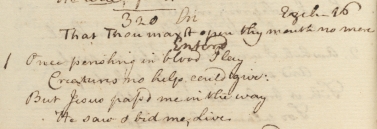 320 Ezek. 16
That Thou mayst open thy mouth no more
1 Once perishing in blood I lay
Creatures no help could give.
But Jesus pass'd me in the way
He saw & bid me, Live